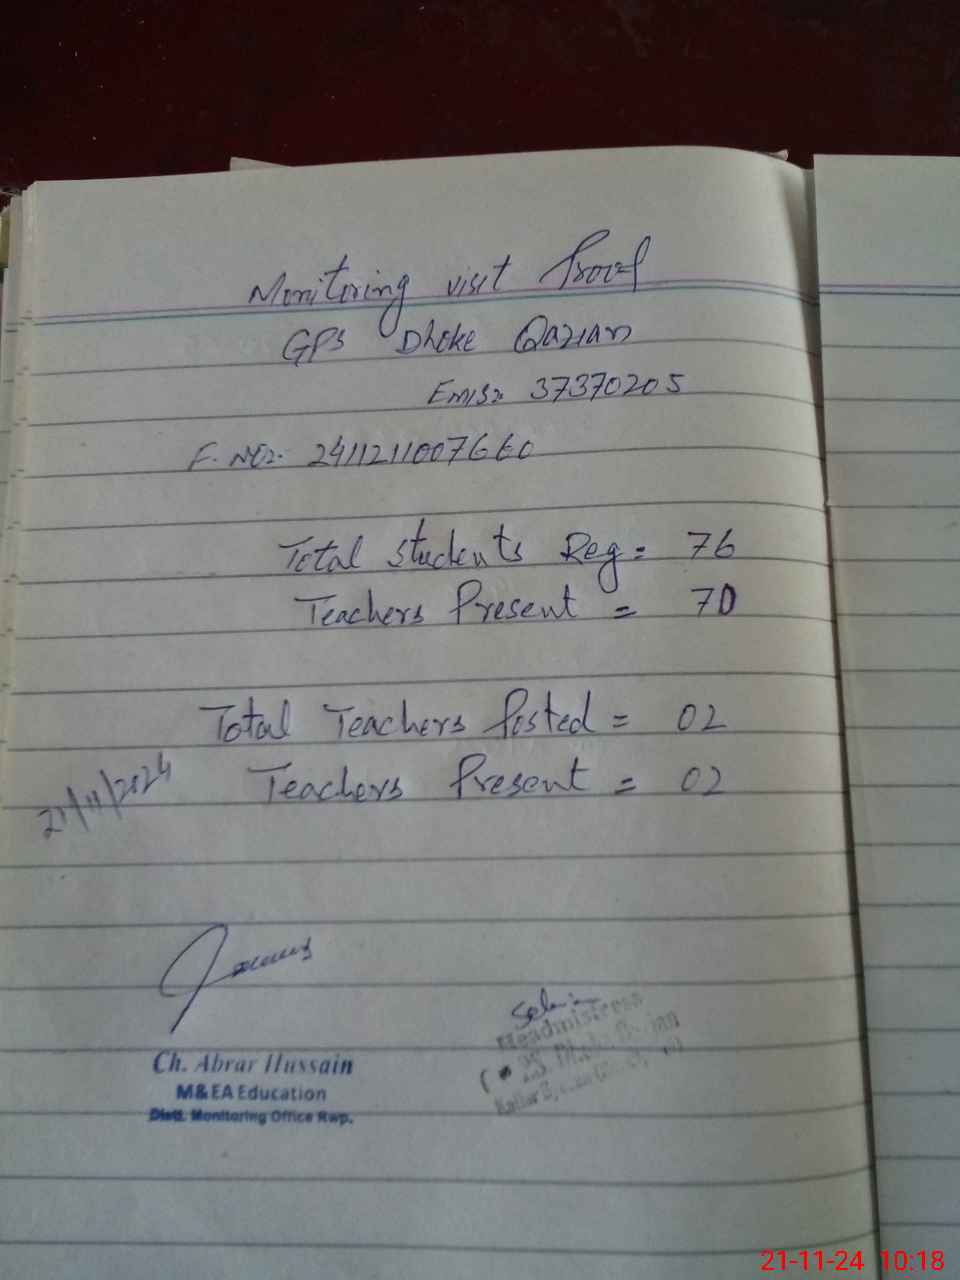 Monitoring visit Proof
GPS Dhoke Qazian
Emis: 37370205
F. NO:- 2411211007660
Total students Reg = 76
Teachers Present = 70
Total Teachers Posted = 02
Teachers Present = 02
21/11/2024
Ch. Abrar Hussain
M&EA Education
Distt. Monitoring Office Rwp.
Headmistress
21-11-24 10:18